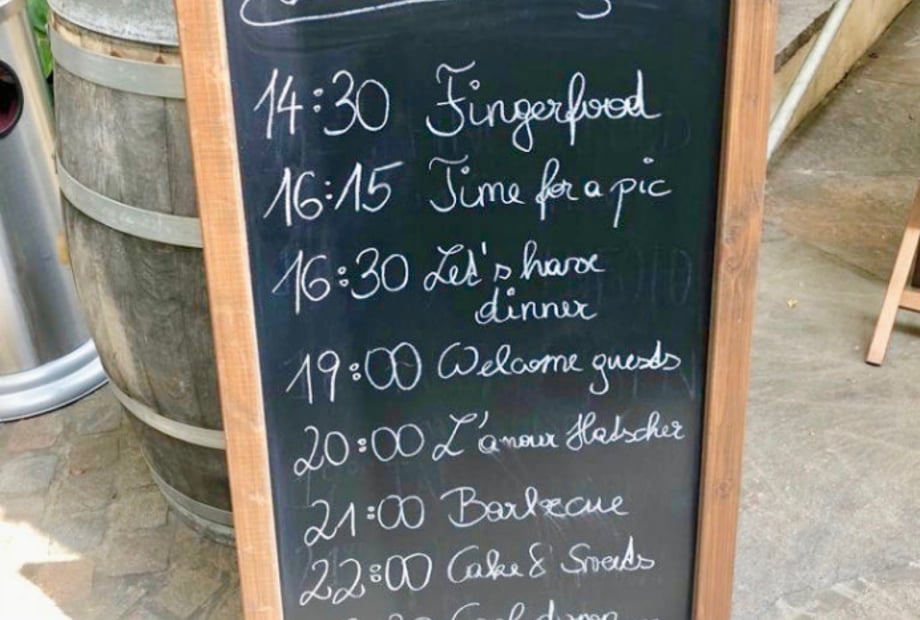 14:30 Fingerfood
16:15 Time for a pic
16:30 Let's have
dinner
19:00 Welcome guests
20:00 L'amour Hatscher
21:00 Barbecue
22:00 Cake & Sweets